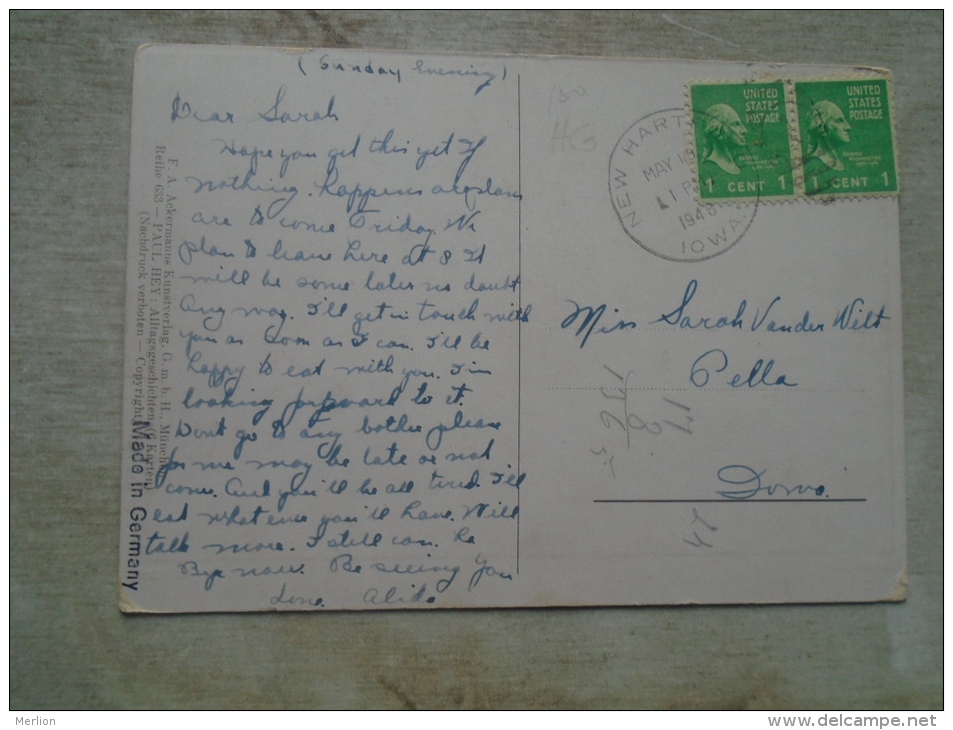 (Sunday Evening)
Dear Sarah
Hope you get this yet If
nothing happens our plans
are to come Friday We
plan to leave here at 8 It
will be some later no doubt
Any way. I'll get in touch with
you as soon as I can. I'll be
happy to eat with you. I'm
looking forward to it.
Dont go to any bother please
for me may be late or not
come. And you'll be all tired. I'll
eat what ever you'll have. Will
talk more. I still can. Ha
Bye now. Be seeing you
Love. Alida
F. A. Ackermanns Kunstverlag, G. m. b. H., München
Reihe 633 — PAUL HEY: Alltagsgeschichten (6 Karten)
(Nachdruck verboten — Copyright)
Made in Germany
NEW HART
MAY
1 P
IOWA
UNITED
STATES
POSTAGE
GEORGE
WASHINGTON
1 CENT 1
UNITED
STATES
POSTAGE
GEORGE
WASHINGTON
1 CENT 1
Miss Sarah Vander Wilt
Pella
Iowa.
HG
Merlion
www.delcampe.net